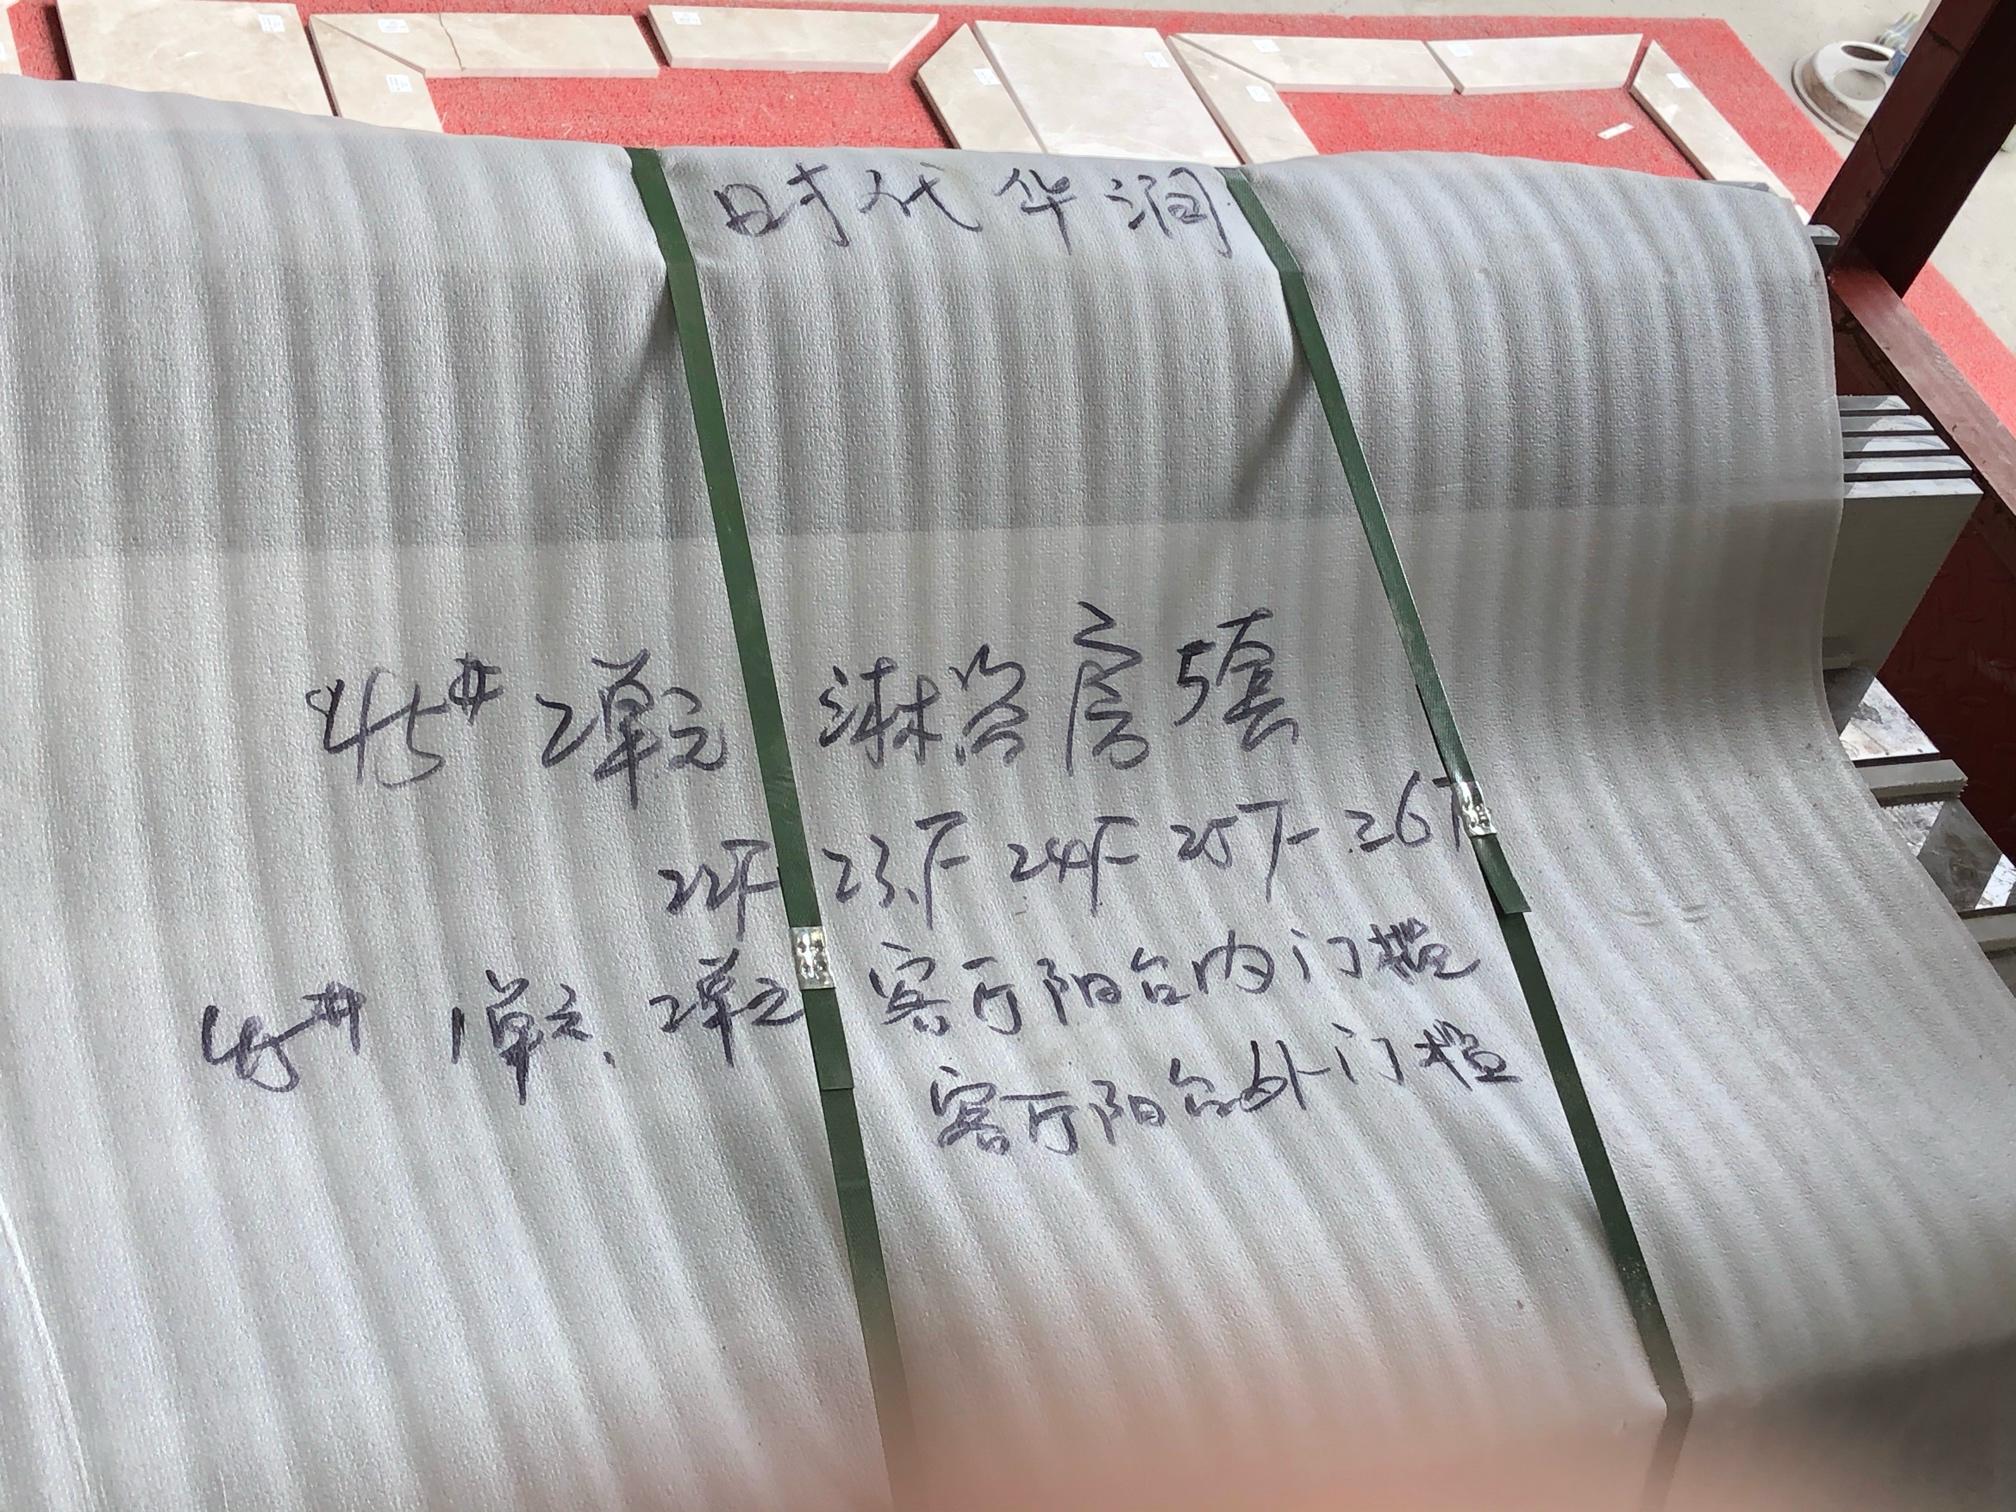 時代华润
45# 2單元 淋浴房5套
22F 23F 24F 25F 26F
45# 1單元、2單元 客厅阳台内门槛
客厅阳台外门槛